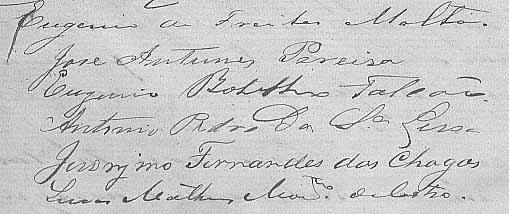 Eugenio de Freitas Malta.
Jose Antunes Pereira
Eugenio Botelho Falcão.
Antonio Pedro Da Sa
Jeronymo Fernandes das Chagas
Lucas Matheus Montro. de Castro.